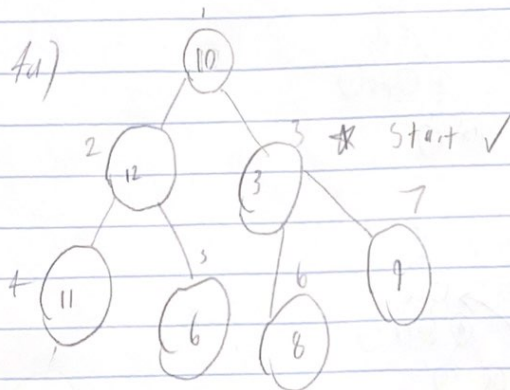 1
4a) 10
2 12 3 3 * Start ✓
4 11 5 6 6 8 7 9